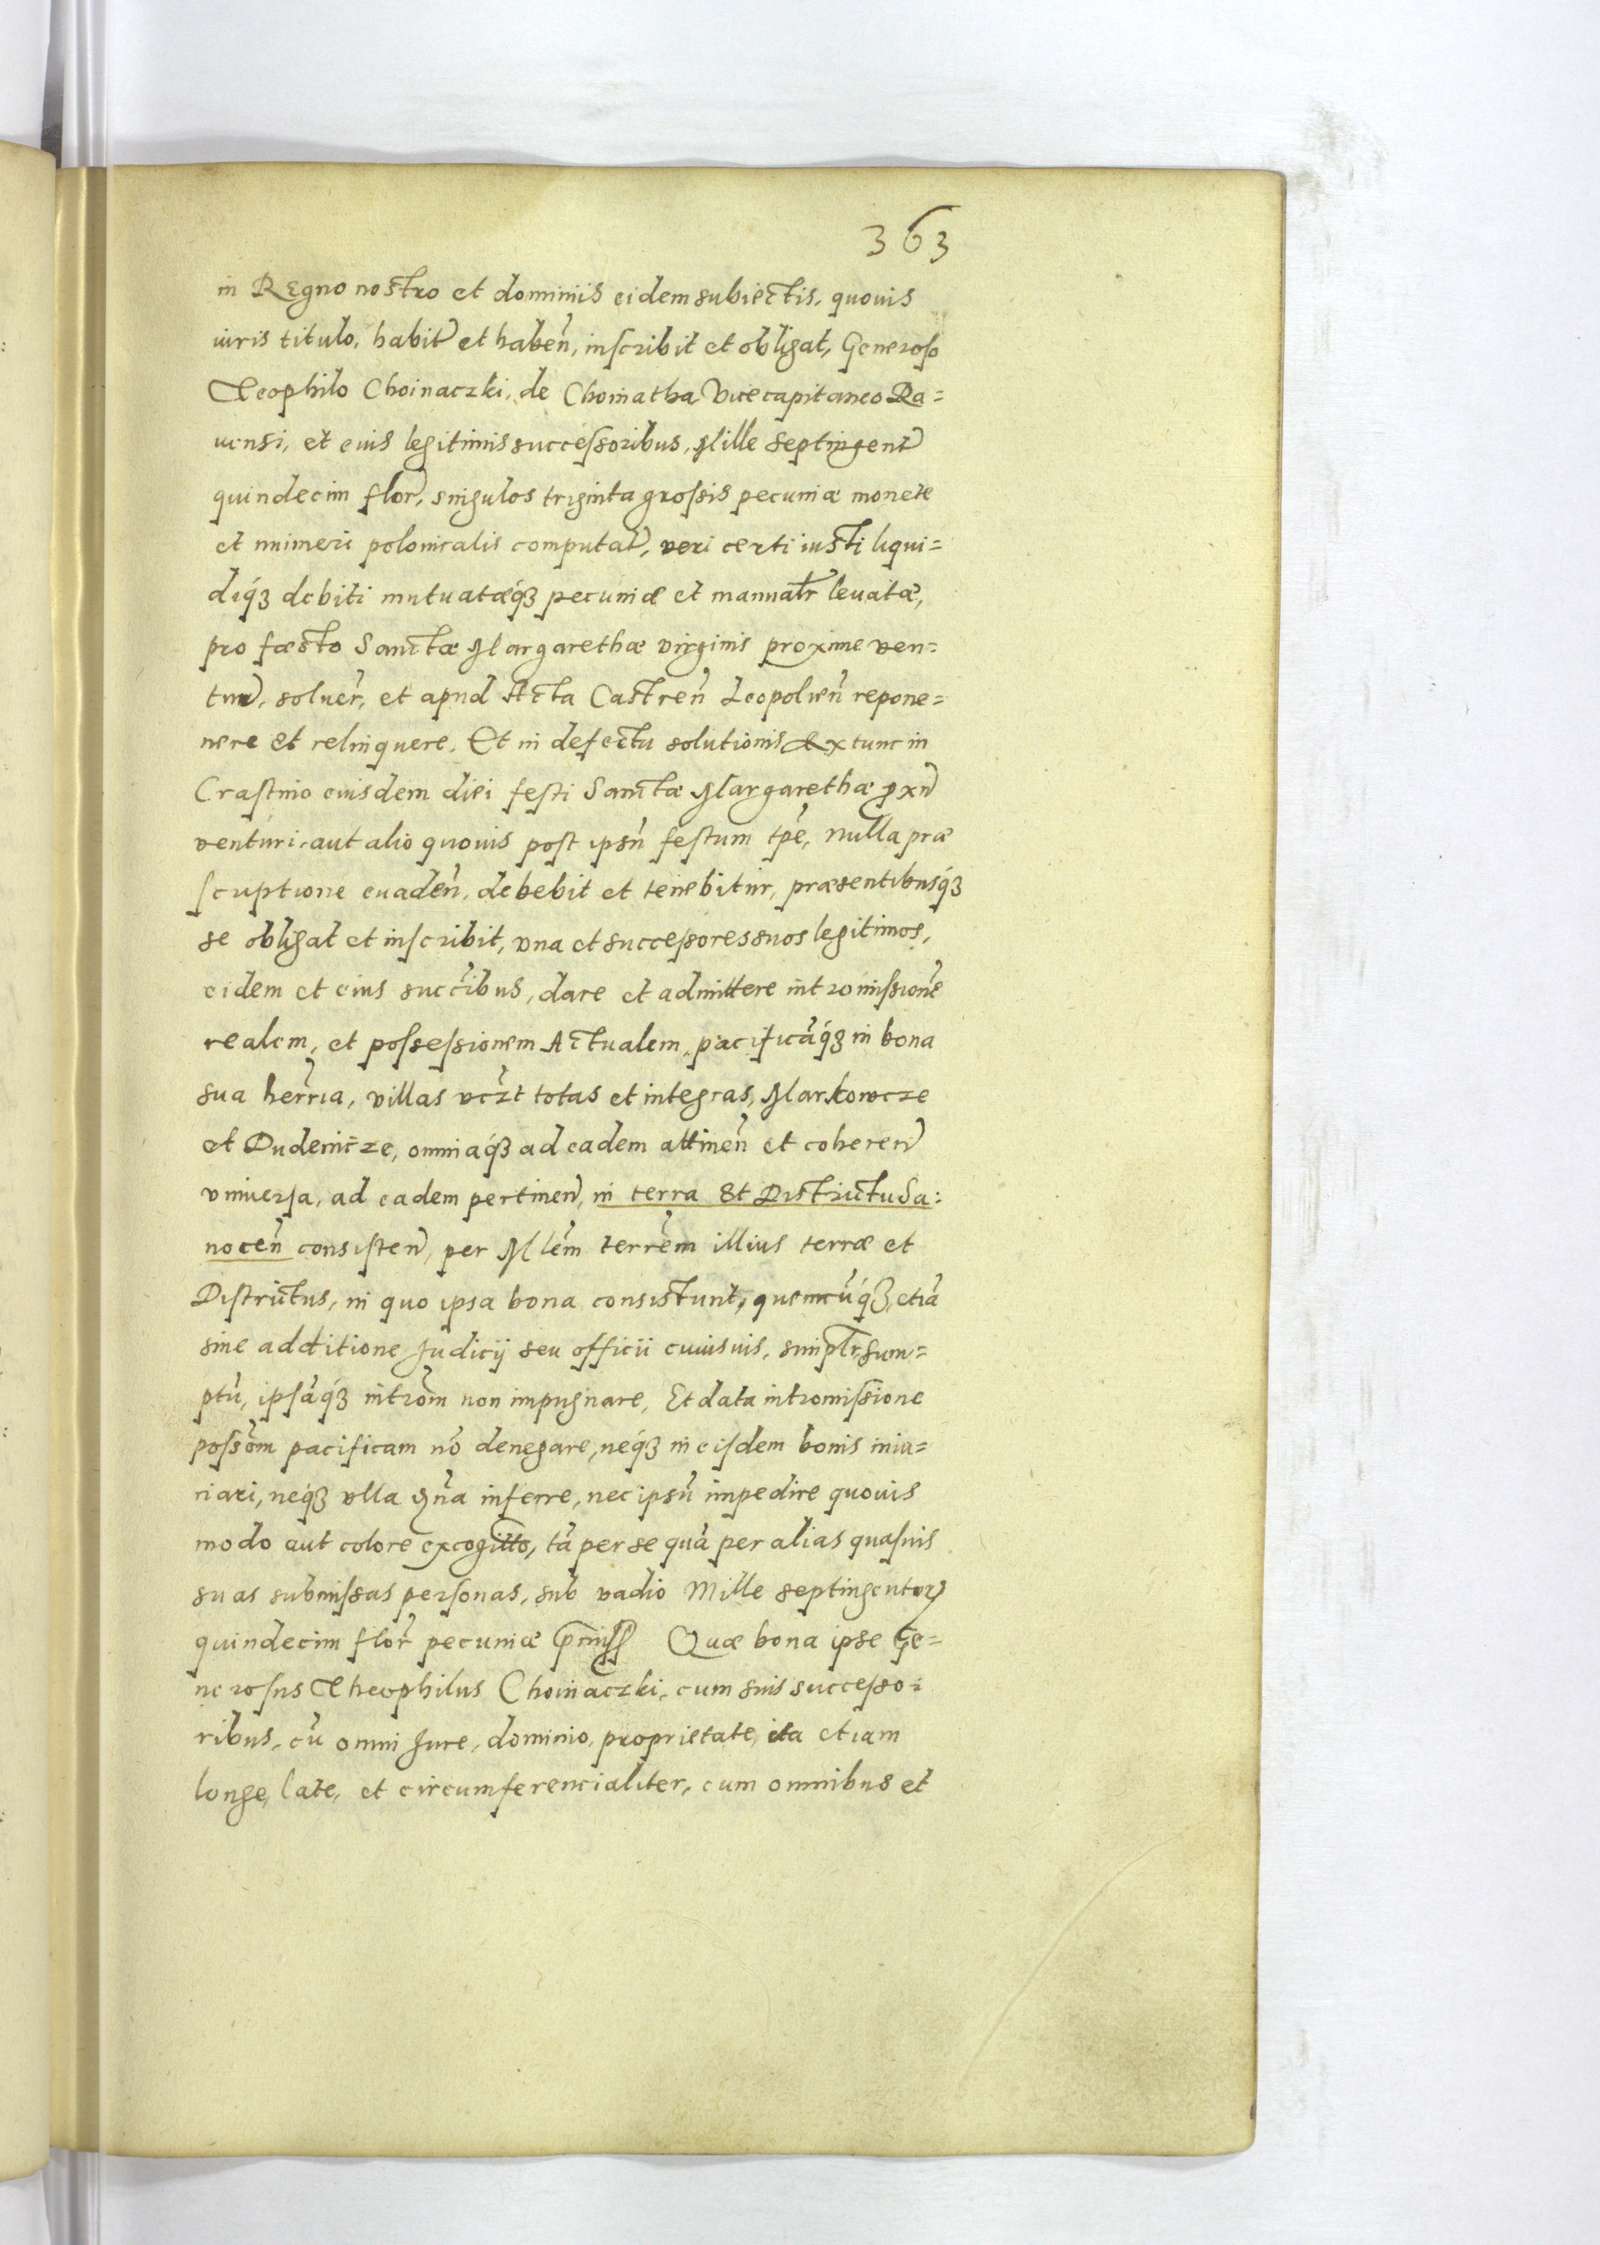 363
in Regno nostro et dominiis eidem subiectis, quouis
iuris titulo, habit et haben, inscribit et obligat, Generoso
Theophilo Choinaczki, de Choinatha Vicecapitaneo Ra=
uensi, et eius legitimis successoribus, Mille septingent
quindecim flor, singulos triginta grossis pecuniæ monete
et numeri polonicalis computat, veri certi iusti liqui=
diq́ꝫ debiti mutuatæq́ꝫ pecuniæ et manualr leuatæ,
pro fæsto Sanctæ Margarethæ virginis proxime ven=
tur, soluer, et apud Acta Castren Leopolien repone=
nere et relinquere. Et in defectu solutionis Extunc in
Crastino eiusdem diei festi Sanctæ Margarethæ pxn
venturi, aut alio quouis post ipsũ festum tpe, nulla præ
scriptione euaden, debebit et tenebitur, præsentibusq́ꝫ
se obligat et inscribit, vna et successores suos legitimos,
eidem et eius succibus, dare et admittere intromissione
realem, et possessionem Actualem, pacificãq́ꝫ in bona
sua herria, villas vczt totas et integras, Markowcze
et Dudenicze, omniaq́ꝫ ad eadem attinen et coheren
vniuersa, ad eadem pertinen, in terra Et Districtu Sa:
nocen consisten, per Mlem terrem illius terræ et
Districtus, in quo ipsa bona consistunt, quemcũq́ꝫ, etiã
sine additione Judicij seu officii cuiusuis, simplr sum=
ptũ, ipsãq́ꝫ introm non impugnare, Et data intromissione
possom pacificam nõ denegare, neq́ꝫ in eisdem bonis iniu=
riari, neq́ꝫ vlla gna inferre, nec ipsũ impedire quouis
modo aut colore excogitto, tã per se quã per alias quasuis
suas submissas personas, sub vadio Mille septingentorꝫ
quindecim flor pecuniæ pmiss Quæ bona ipse Ge=
nerosus Theophilus Choinaczki, cum suis successo=
ribus, cũ omni Jure, dominio, proprietate, ita etiam
longe, late, et circumferencialiter, cum omnibus et